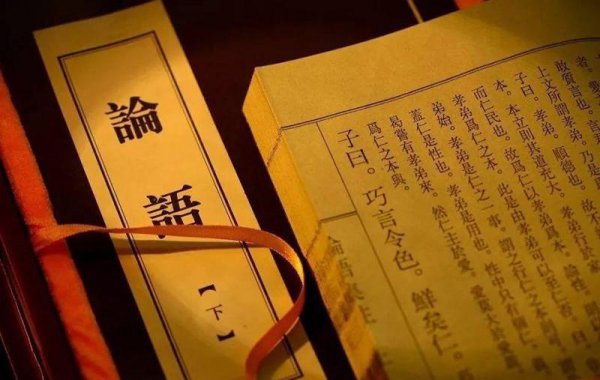 論語
【下】
者。
敢質言也。
上文所謂孝弟。乃是爲
子曰。孝弟。順德也。故不
本。本立則其道充大。孝弟行於家
而仁民也。故爲仁以孝弟爲本。論性。
孝弟爲仁之本。此是由孝弟可以至仁否。曰
弟始。孝弟是仁之一事。謂之行仁之本則可。
蓋仁是性也。孝弟是用也。性中只有箇仁
曷嘗有孝弟來。然仁主於愛。愛莫大於愛
爲仁之本與。
子曰。巧言令色。鮮矣仁。
論語集注